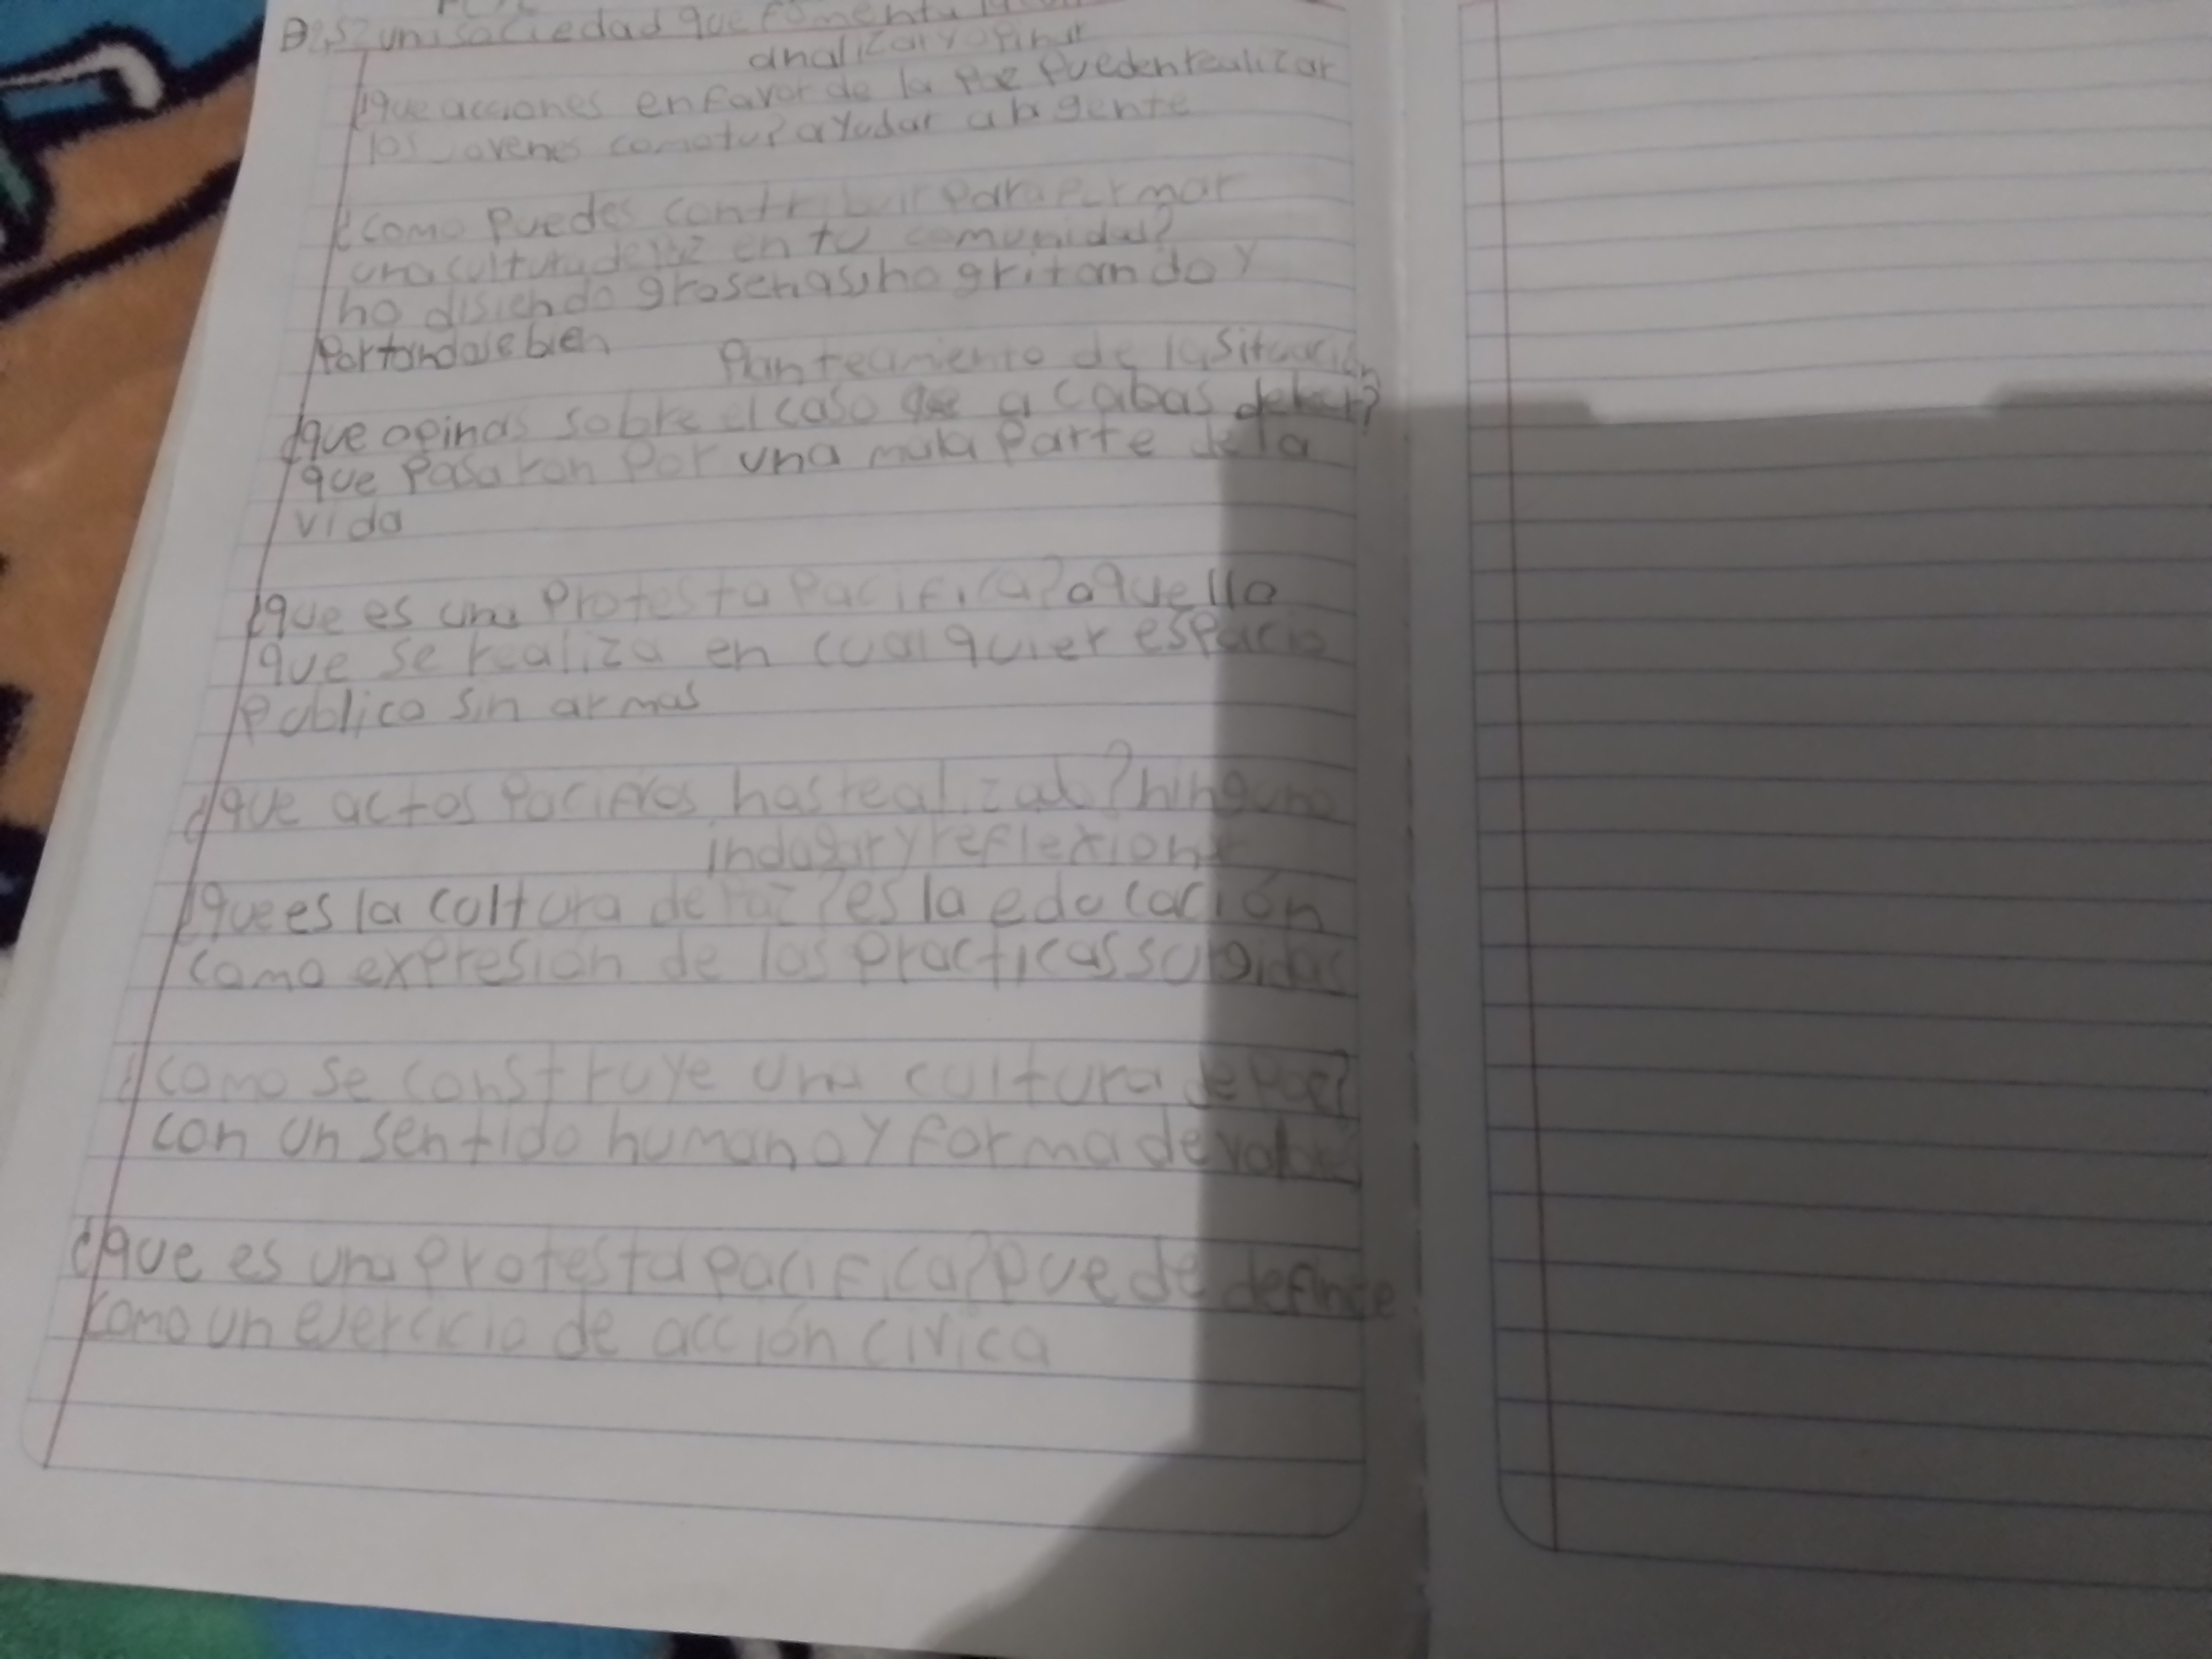 un sociedad que fomenta
analizar y opinar
¿que acciones en favor de la paz pueden realizar
los jovenes como tu? ayudar a la gente
¿como puedes contribuir para formar
una cultura de paz en tu comunidad?
no disiendo groserias, no gritando y
portandose bien
Planteamiento de la situación
¿que opinas sobre el caso que acabas de leer?
que pasaron por una mala parte de la
vida
¿que es una protesta pacifica? aquella
que se realiza en cualquier espacio
publico sin armas
¿que actos pacificos has realizado? ninguno
indagar y reflexionar
¿que es la cultura de paz? es la educación
como expresión de las practicas surgidas
¿como se construye una cultura de paz?
con un sentido humano y forma de valores
¿que es una protesta pacifica? puede definirse
como un ejercicio de acción civica